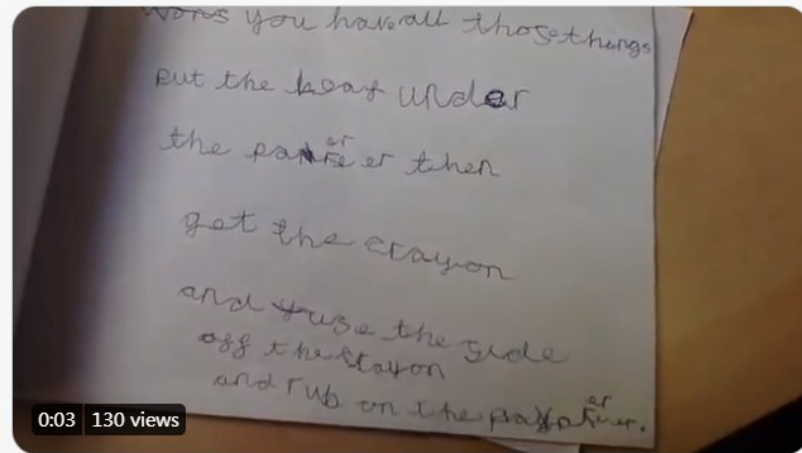 wons you have all those things
put the leaf under
the paper then
get the crayon
and use the side
off the crayon
and rub on the
0:03 130 views